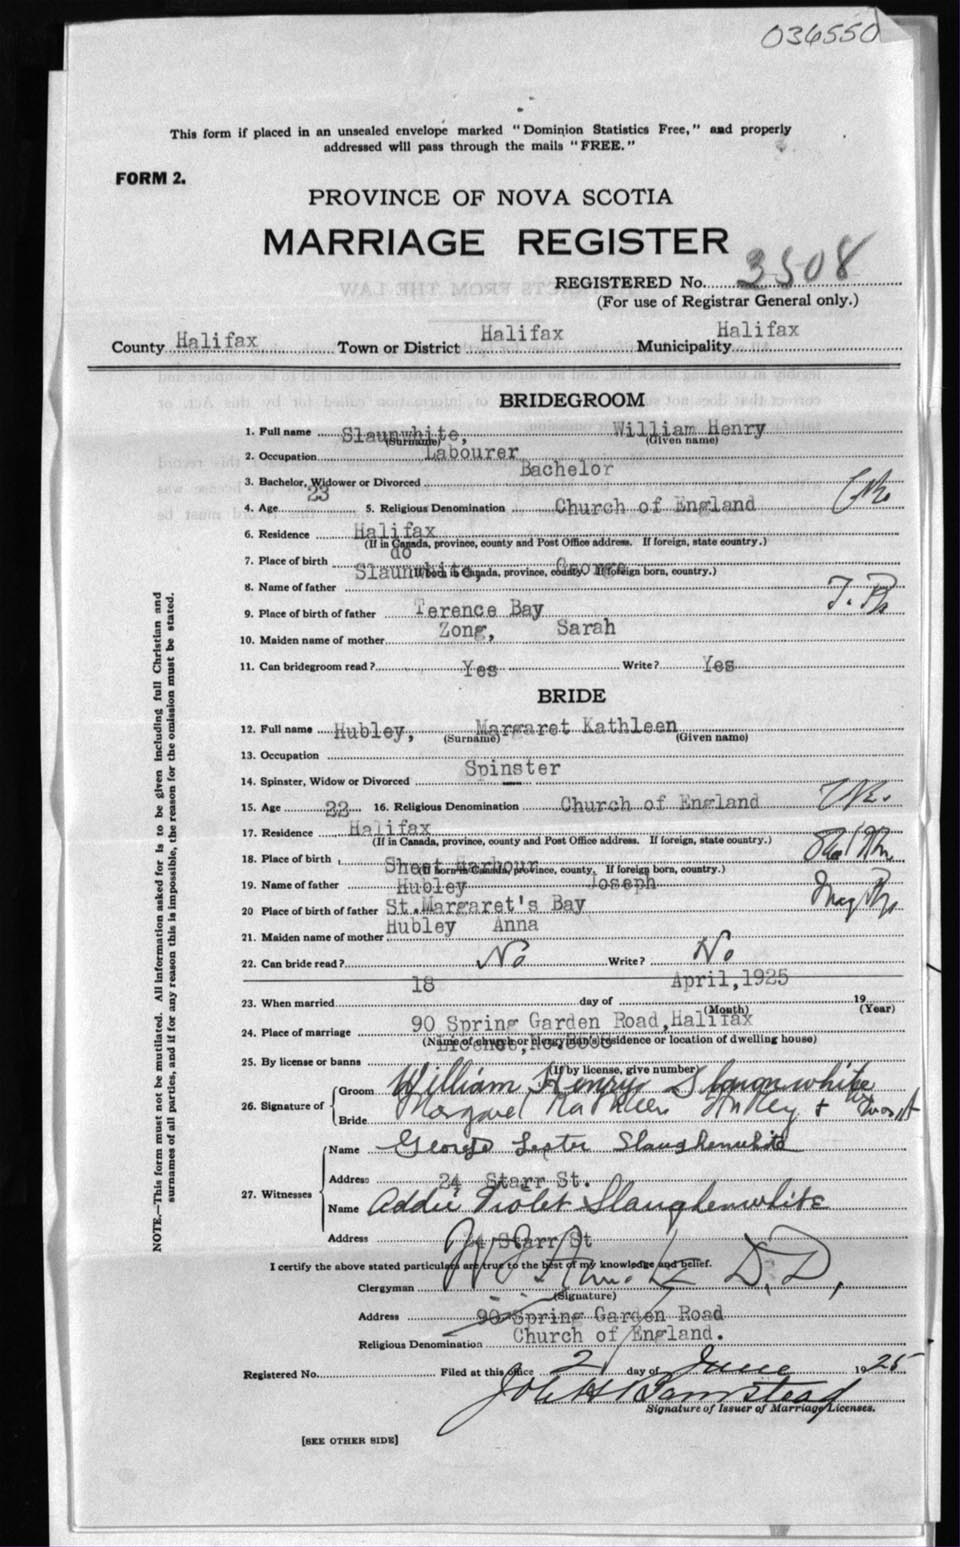 036550
This form if placed in an unsealed envelope marked "Dominion Statistics Free," and properly
addressed will pass through the mails "FREE."
FORM 2.
PROVINCE OF NOVA SCOTIA
MARRIAGE REGISTER
REGISTERED No. 3508
(For use of Registrar General only.)
County Halifax Town or District Halifax Municipality Halifax
BRIDEGROOM
1. Full name Slaunwhite, William Henry
(Surname) (Given name)
2. Occupation Labourer
3. Bachelor, Widower or Divorced Bachelor
4. Age 23 5. Religious Denomination Church of England
6. Residence Halifax
(If in Canada, province, county and Post Office address. If foreign, state country.)
7. Place of birth do
(If born in Canada, province, county. If foreign born, country.)
8. Name of father Slaunwhite, George
9. Place of birth of father Terence Bay
T. B.
10. Maiden name of mother Zong, Sarah
11. Can bridegroom read? Yes Write? Yes
BRIDE
12. Full name Hubley, Margaret Kathleen
(Surname) (Given name)
13. Occupation
14. Spinster, Widow or Divorced Spinster
15. Age 22 16. Religious Denomination Church of England
17. Residence Halifax
(If in Canada, province, county and Post Office address. If foreign, state country.)
18. Place of birth Sheet Harbour
(If born in Canada, province, county. If foreign born, country.)
19. Name of father Hubley Joseph
20 Place of birth of father St.Margaret's Bay
21. Maiden name of mother Hubley Anna
22. Can bride read? No Write? No
23. When married 18 day of April,1925 19
(Month) (Year)
24. Place of marriage 90 Spring Garden Road,Halifax
(Name of church or clergyman's residence or location of dwelling house)
25. By license or banns Licence,No.
(If by license, give number)
26. Signature of
Groom William Henry Slaunwhite
Bride Margaret Kathleen Hubley
27. Witnesses
Name George Lester Slaughenwhite
Address 24 Starr St.
Name Addie Violet Slaughenwhite
Address 24 Starr St
I certify the above stated particulars are true to the best of my knowledge and belief.
Clergyman D.D.,
(Signature)
Address 90 Spring Garden Road
Religious Denomination Church of England.
Registered No. Filed at this office 2 day of June 1925
Signature of Issuer of Marriage Licenses.
[SEE OTHER SIDE]
NOTE.—This form must not be mutilated. All information asked for is to be given including full Christian and
surnames of all parties, and if for any reason this is impossible, the reason for the omission must be stated.